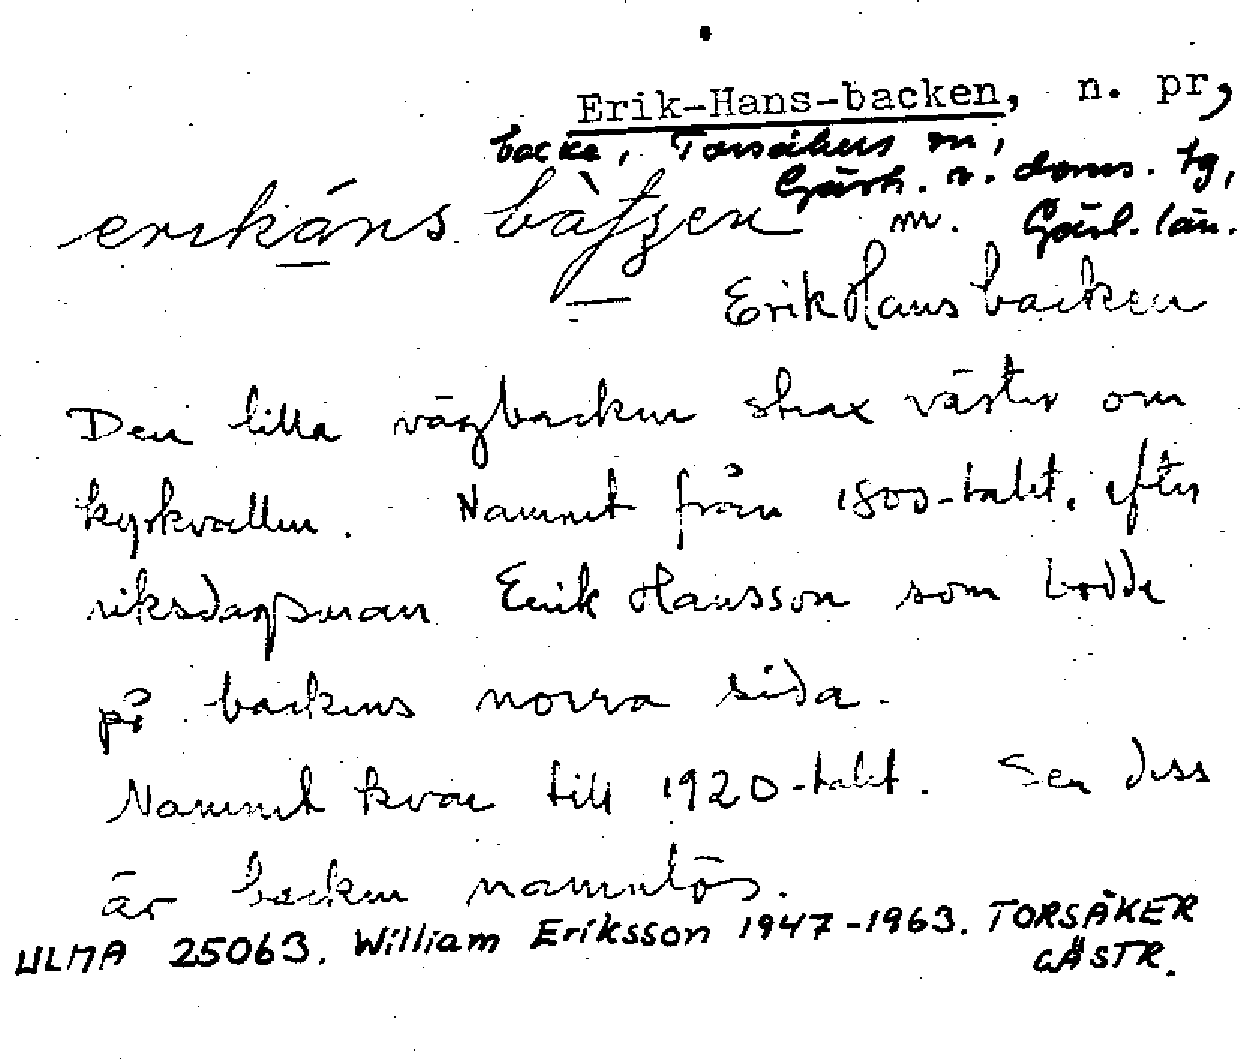 Erik-Hans-backen, n. pr,
backe, Torsåkers sn,
Gästr. v. doms. tg,
erikáns bàtʃen m. Gävl. län.
Erik Hans backen
Den lilla vägbacken strax väster om
kyrkvallen. Namnet från 1800-talet, efter
riksdagsman Erik Hansson som bodde
på backens norra sida.
Namnet kvar till 1920-talet. Sen dess
är backen namnlös.
ULMA 25063. William Eriksson 1947-1963. TORSÅKER
GÄSTR.